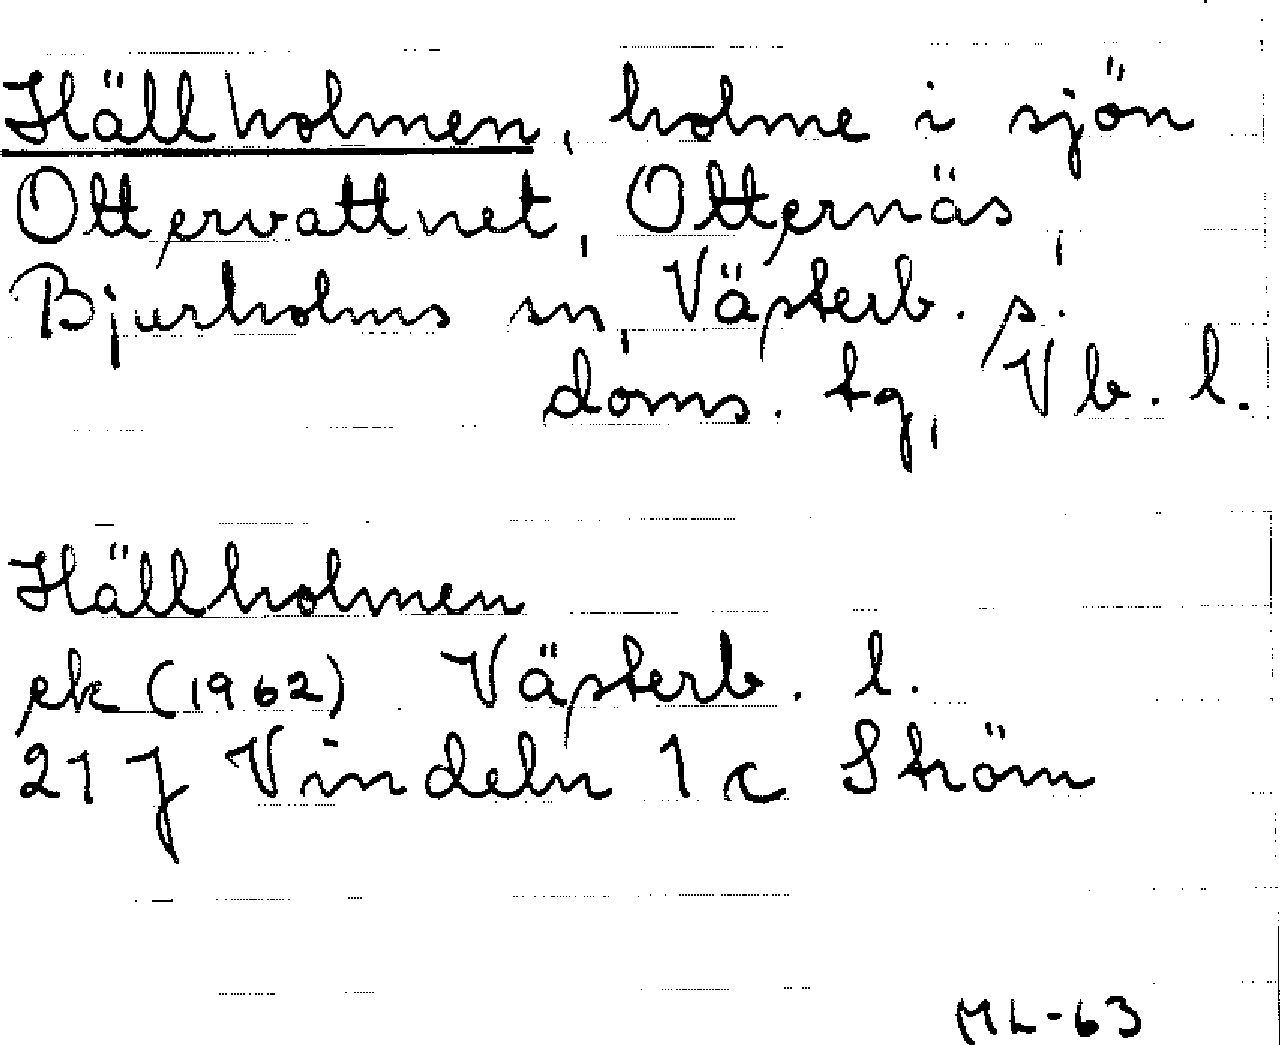 Hällholmen, holme i sjön
Ottervattnet, Otternäs,
Bjurholms sn, Västerb. s:
doms. tg, Vb. l.
Hällholmen
ek (1962) Västerb. l.
21 J Vindeln 1 c Ström
ML-63